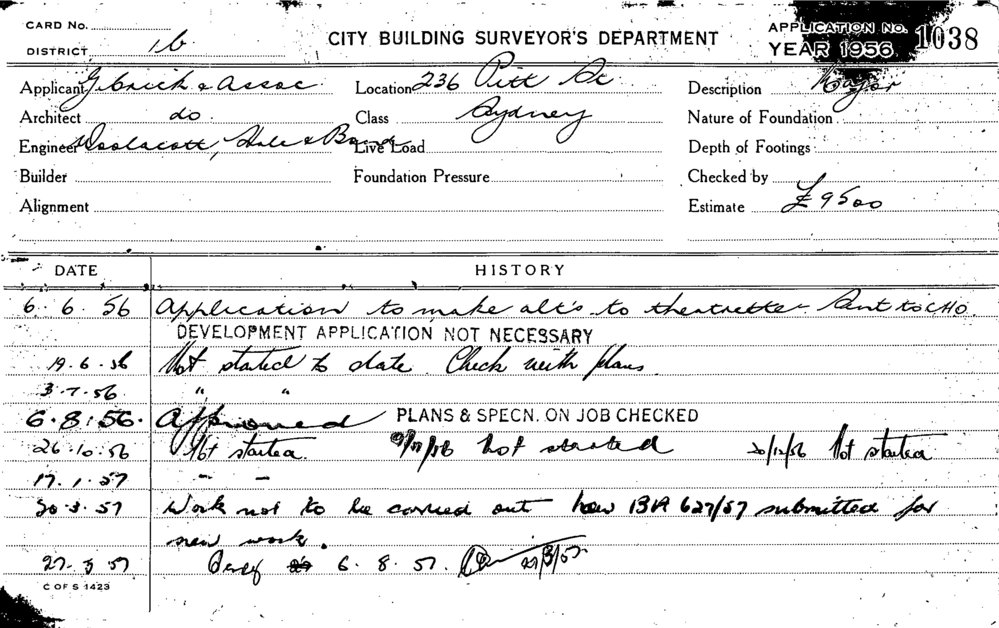 CARD No.
DISTRICT 1b
CITY BUILDING SURVEYOR'S DEPARTMENT
APPLICATION No. 1038
YEAR 1956.
Applicant G. & Assoc
Location 236 Pitt St
Description Major
Architect do.
Class Sydney
Nature of Foundation
Engineer Woolacott, Hale & Bond
Live Load
Depth of Footings
Builder
Foundation Pressure
Checked by
Alignment
Estimate £9500
DATE HISTORY
6.6.56 Application to make alt's to theatrette - Ant to CHO.
DEVELOPMENT APPLICATION NOT NECESSARY
19.6.56 Not started to date. Check with plans.
3.7.56 " "
6.8.56. Approved PLANS & SPECN. ON JOB CHECKED
26.10.56 Not started. 9/11/56 Not started 20/12/56 Not started
17.1.57 - -
20.3.57 Work not to be carried out new BA 627/57 submitted for
new work.
27.3.57 6.8.57. 27/3/57
C OF S 1423